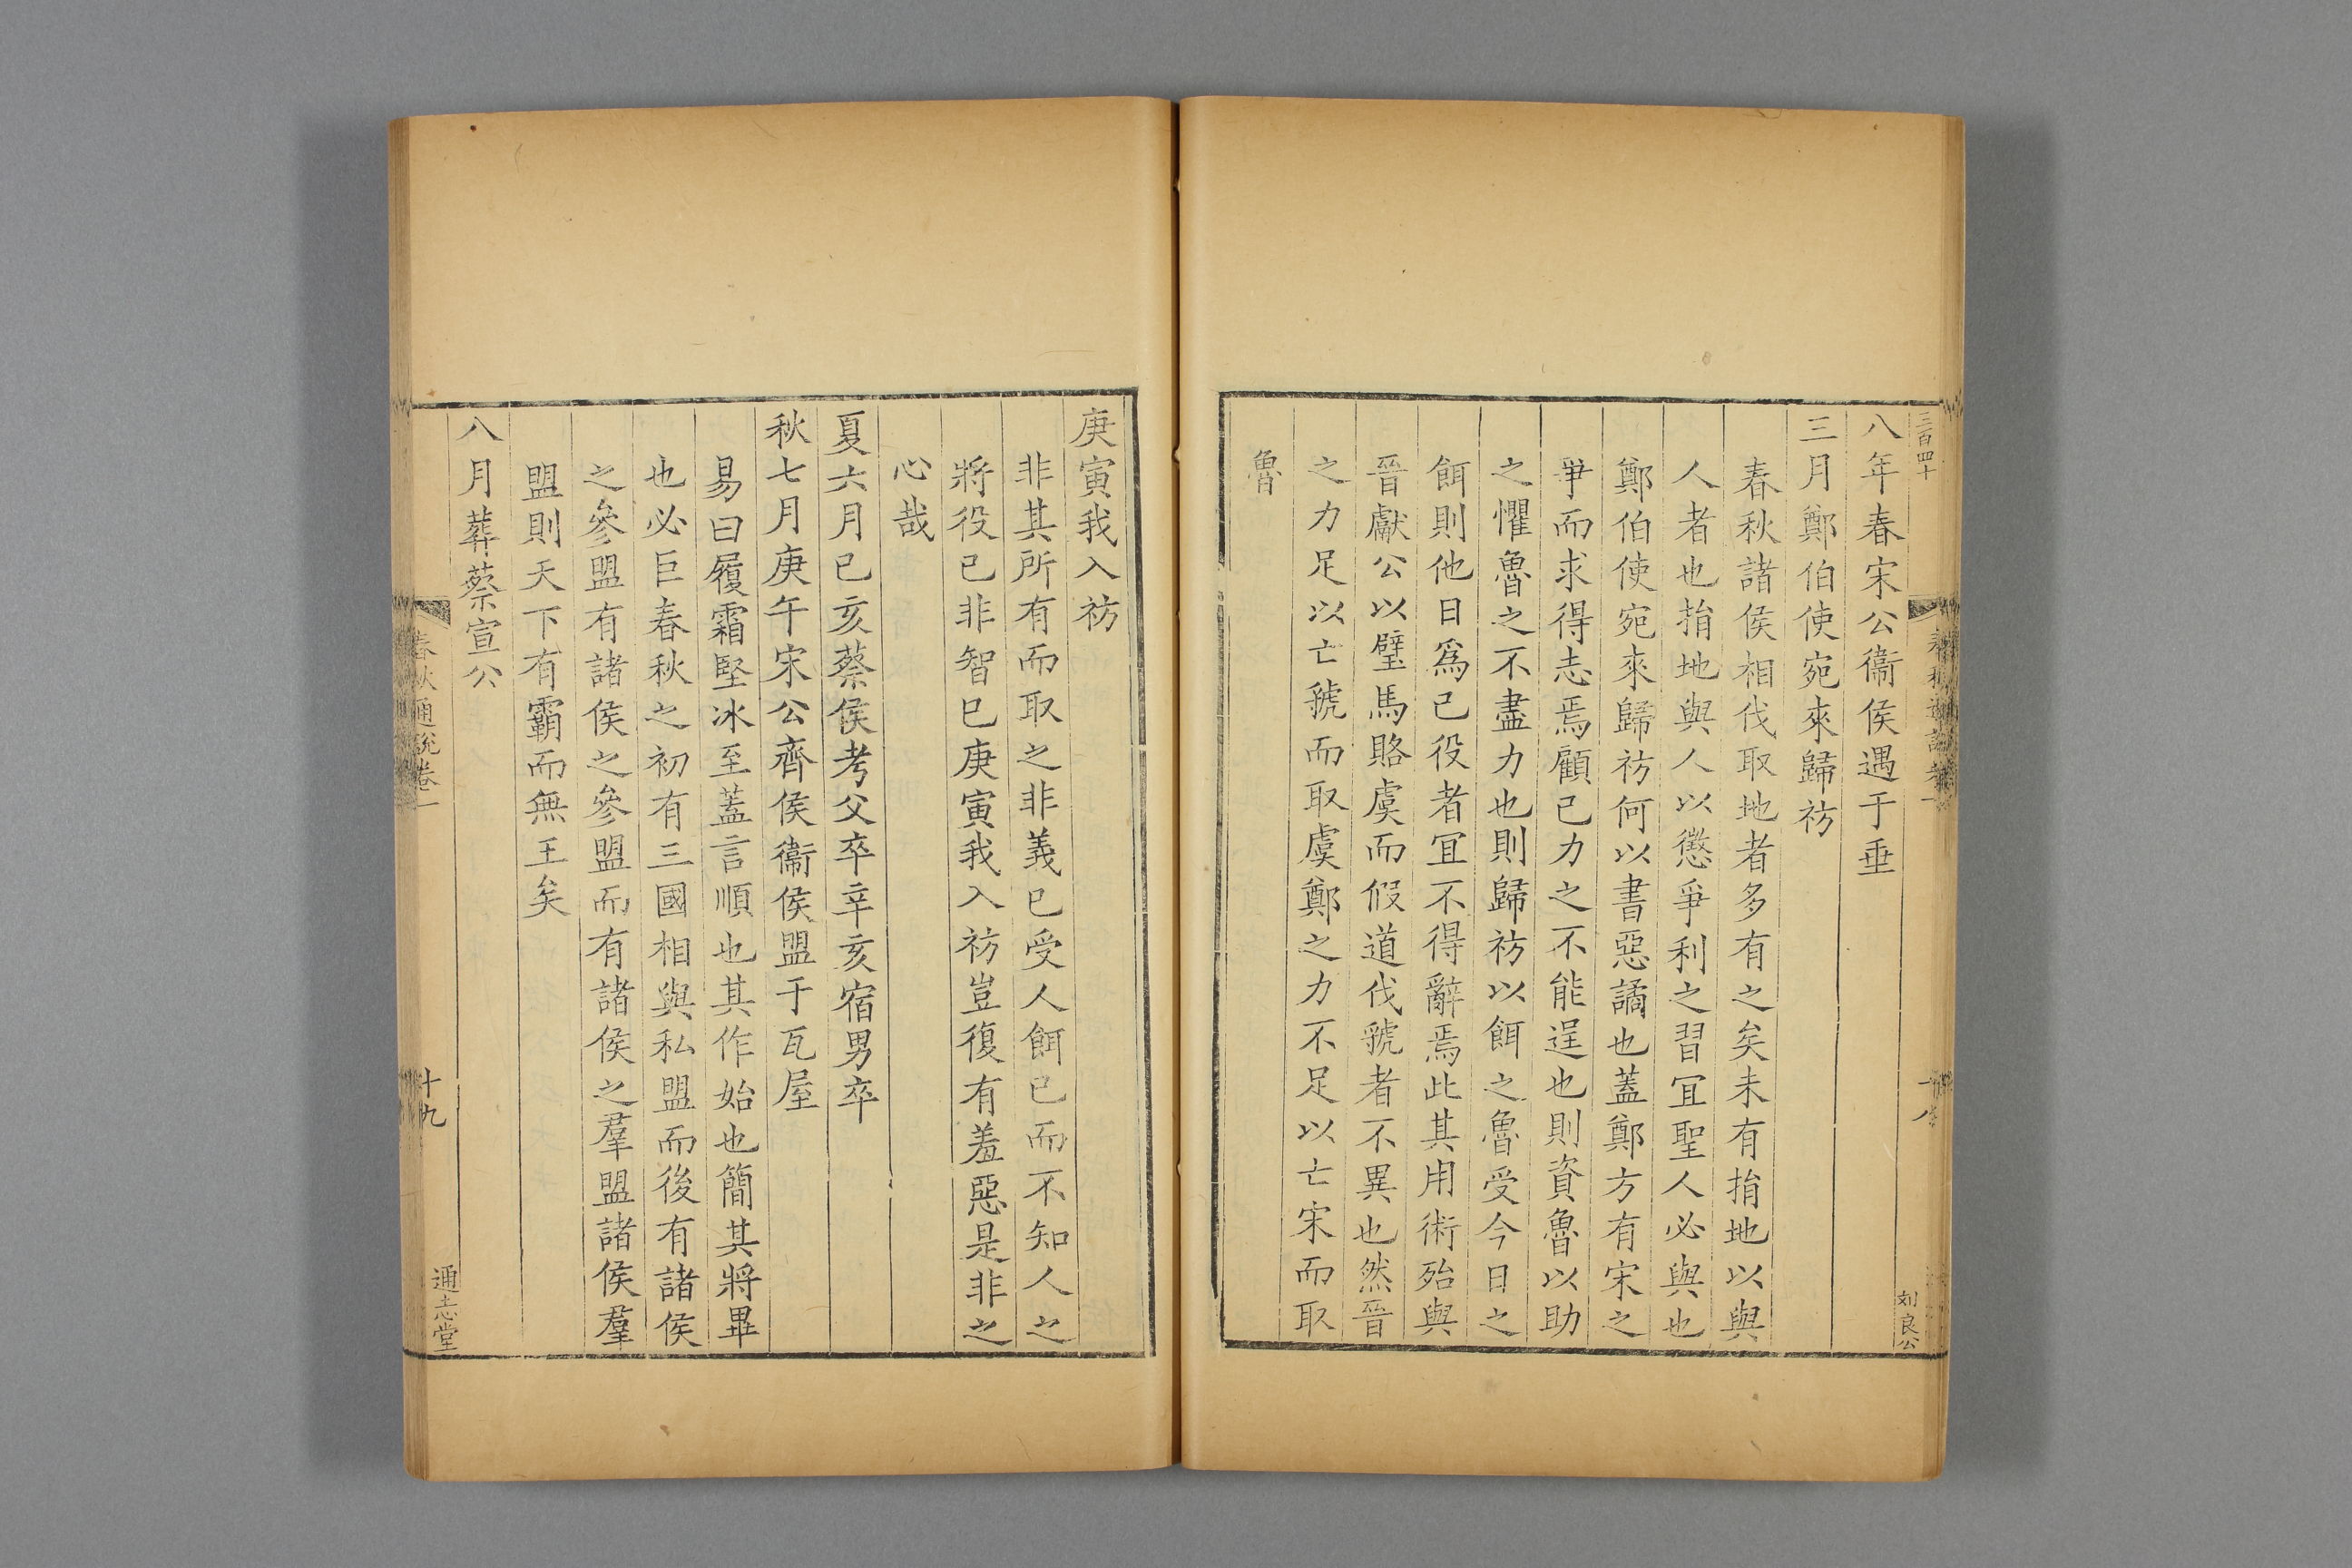 三百四十
八年春宋公衞侯遇于垂
三月鄭伯使宛來歸祊
春秋諸侯相伐取地者多有之矣未有捐地以與
人者也捐地與人以懲爭利之習冝聖人必與也
鄭伯使宛來歸祊何以書惡譎也蓋鄭方有宋之
爭而求得志焉顧已力之不能逞也則資魯以助
之懼魯之不盡力也則歸祊以餌之魯受今日之
餌則他日爲己役者冝不得辭焉此其用術殆與
晉獻公以璧馬賂虞而假道伐虢者不異也然晉
之力足以亡虢而取虞鄭之力不足以亡宋而取
魯
刘良公
庚寅我入祊
非其所有而取之非義已受人餌已而不知人之
將役已非智巳庚寅我入祊豈復有羞惡是非之
心哉
夏六月已亥蔡侯考父卒辛亥宿男卒
秋七月庚午宋公齊侯衞侯盟于瓦屋
易曰履霜堅冰至蓋言順也其作始也簡其將畢
也必巨春秋之初有三國相與私盟而後有諸侯
之參盟有諸侯之參盟而有諸侯之羣盟諸侯羣
盟則天下有霸而無王矣
八月葬蔡宣公
春秋通説卷一
十九
通志堂